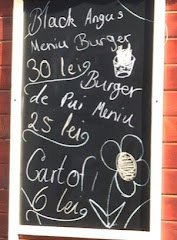 Black Angus
Meniu Burger
30 lei
Burger
de Pui Meniu
25 lei
Cartofi
6 lei